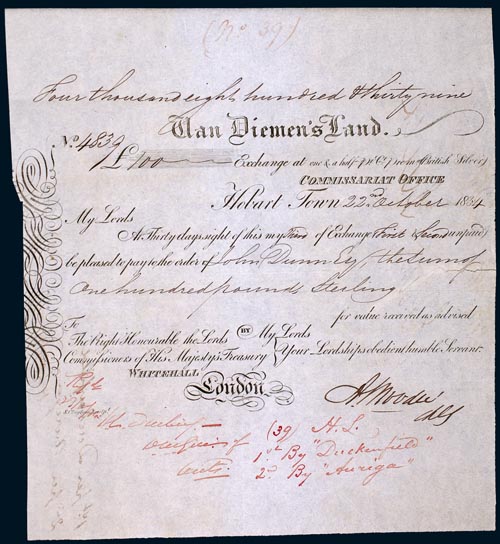 (No 39)
Four thousand eight hundred & thirty nine
Van Diemen's Land.
No. 4839
£100 Exchange at one & a half p Ct. prem. (British Silver)
COMMISSARIAT OFFICE
Hobart Town 22nd October 1834
My Lords
At Thirty days sight of this my Third of Exchange (First & Second unpaid)
be pleased to pay to the order of John Dunn Esq the Sum of
One hundred pounds Sterling
for value received as advised
To
The Right Honourable the Lords BY My Lords
Commissioners of His Majesty's Treasury Your Lordships obedient humble Servant.
WHITEHALL
London
A Moodie
(39) H. L.
of 1st By "Duckenfield"
2d By "Auriga"